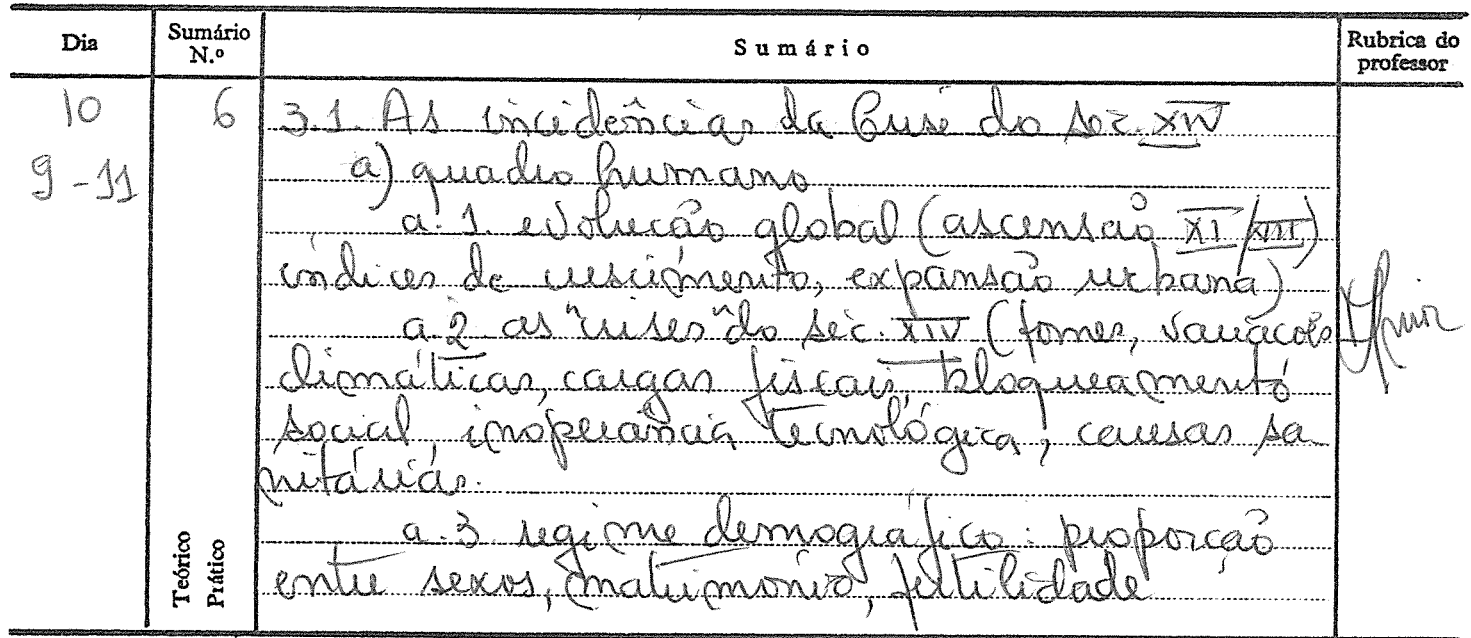 Dia Sumário N.º Sumário Rubrica do professor
10 6 3.1. As incidências da Crise do séc. XIV
9-11 a) quadro humano
a. 1. evolução global (ascensão XI/XIII)
índices de crescimento, expansão urbana)
a. 2 as "crises" do séc. XIV (fomes, variações
climáticas, cargas fiscais, bloqueamento
social, inoperância tecnológica, causas sa-
nitárias.
a. 3 regime demográfico: proporção
entre sexos, matrimónio, fertilidade
Teórico
Prático